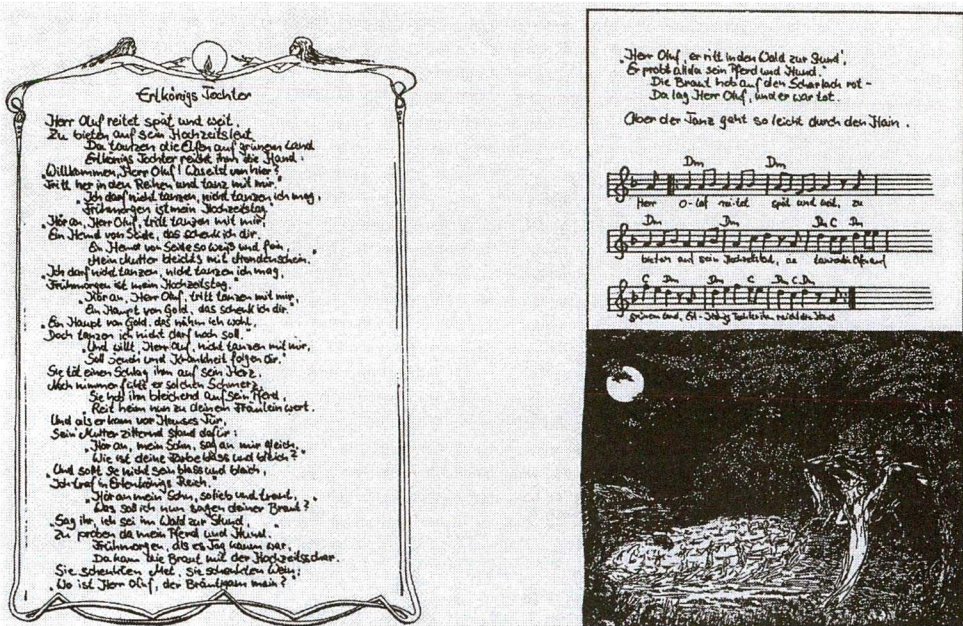 Erlkönigs Tochter
Herr Oluf reitet spät und weit,
Zu bieten auf sein Hochzeitsleut
Da tanzen die Elfen auf grünem Land
Erlkönigs Tochter reicht ihm die Hand:
"Willkommen, Herr Oluf! Was eilst von hier?
Tritt her in den Reihen und tanz mit mir."
"Ich darf nicht tanzen, nicht tanzen ich mag,
Frühmorgen ist mein Hochzeitstag."
"Hör an, Herr Oluf, tritt tanzen mit mir,
Ein Hemd von Seide, das schenk ich dir.
Ein Hemd von Seide so weiß und fein,
Meine Mutter bleichts mit Mondenschein."
"Ich darf nicht tanzen, nicht tanzen ich mag,
Frühmorgen ist mein Hochzeitstag."
"Hör an, Herr Oluf, tritt tanzen mit mir,
Ein Haupt von Gold, das schenk ich dir."
"Ein Haupt von Gold, das nähm ich wohl,
Doch tanzen ich nicht darf noch soll."
"Und willt, Herr Oluf, nicht tanzen mit mir,
Soll Seuch und Krankheit folgen dir."
Sie tät einen Schlag ihm auf sein Herz,
Noch nimmer fühlt er solchen Schmerz.
Sie hob ihn bleichend auf sein Pferd,
"Reit heim nun zu deinem Fräulein wert."
Und als er kam vor Hauses Tür,
Seine Mutter zitternd stand dafür:
"Hör an, mein Sohn, sag an mir gleich,
Wie ist deine Farbe blass und bleich?"
"Und sollt sie nicht sein blass und bleich,
Ich traf in Erlenkönigs Reich."
"Hör an mein Sohn, so lieb und traut,
Was soll ich nun sagen deiner Braut?"
"Sag ihr, ich sei im Wald zur Stund,
Zu proben da mein Pferd und Hund."
Frühmorgen, als es Tag kaum war,
Da kam die Braut mit der Hochzeitschar.
Sie schenkten Met, sie schenkten Wein;
"Wo ist Herr Oluf, der Bräutigam mein?"
"Herr Oluf, er ritt in den Wald zur Stund',
Er probt allda sein Pferd und Hund."
Die Braut hob auf den Scharlach rot -
Da lag Herr Oluf, und er war tot.
Aber der Tanz geht so leicht durch den Hain.
Dm Dm
Herr O-lof rei-tet spät und weit, zu
Dm Dm Dm C Dm
bieten auf sein
C Dm Dm C Dm C Dm